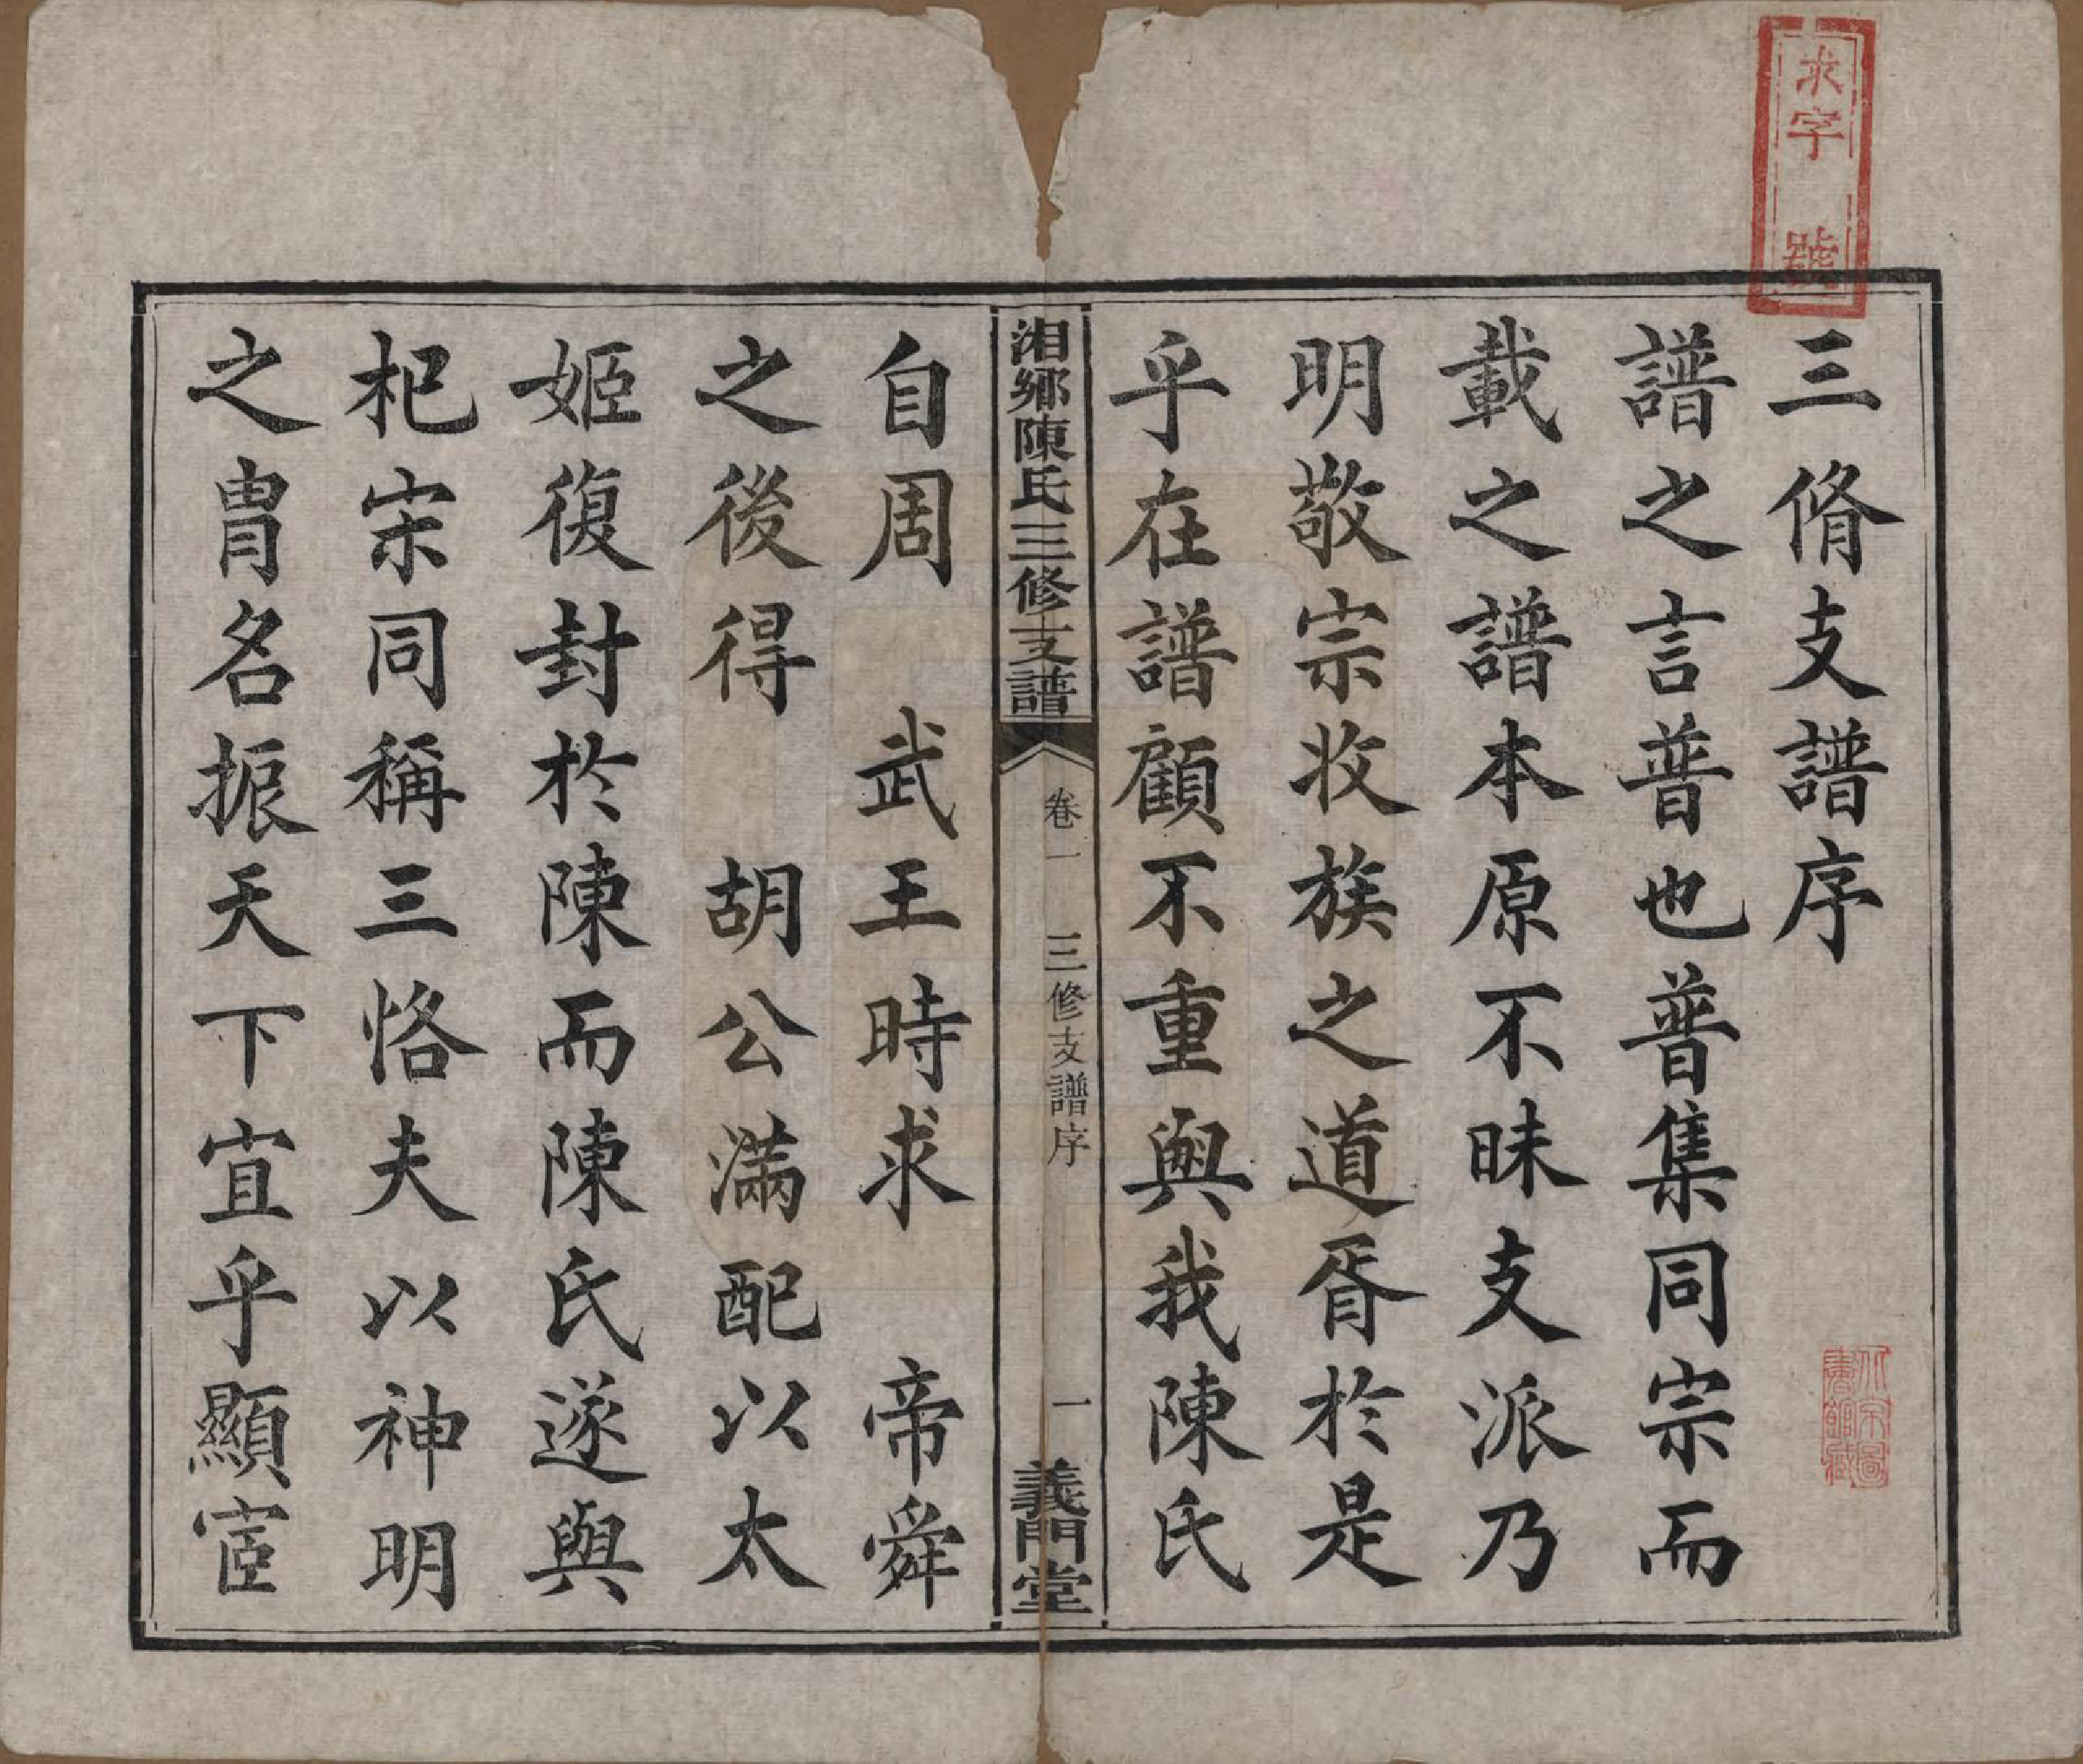 三脩支譜序
譜之言普也普集同宗而
載之譜本原不昧支派乃
明敬宗收族之道胥於是
乎在譜顧不重與我陳氏
湘鄉陳氏三修支譜
卷一
三修支譜序
一
義門堂
自周 武王時求 帝舜
之後得 胡公滿配以太
姬復封於陳而陳氏遂與
杞宋同稱三恪夫以神明
之胄名振天下宜乎顯宦
求字 號